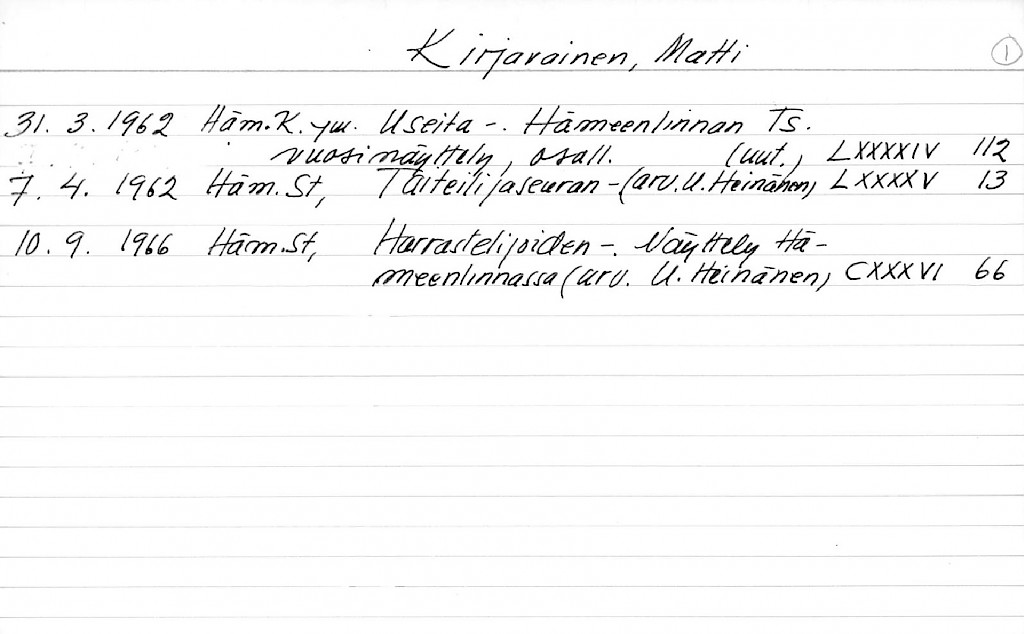 Kirjavainen, Matti 1
31. 3. 1962 Häm.K. ym. Useita -. Hämeenlinnan Ts.
vuosinäyttely, osall. (uut.) LXXXXIV 112
7. 4. 1962 Häm. St, Taiteilijaseuran - (arv. U. Heinänen) LXXXXV 13
10. 9. 1966 Häm. St, Harrastelijoiden -. Näyttely Hä-
meenlinnassa (arv. U. Heinänen) CXXXVI 66